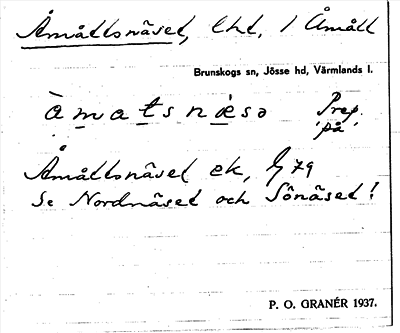 Åmåttsnäset, lht, i Åmått
Brunskogs sn, Jösse hd, Värmlands l.
àmatsnæsə Prep. på
Åmåttsnäset ek, G 79
Se Nordnäset och Sönäset!
P. O. GRANÉR 1937.